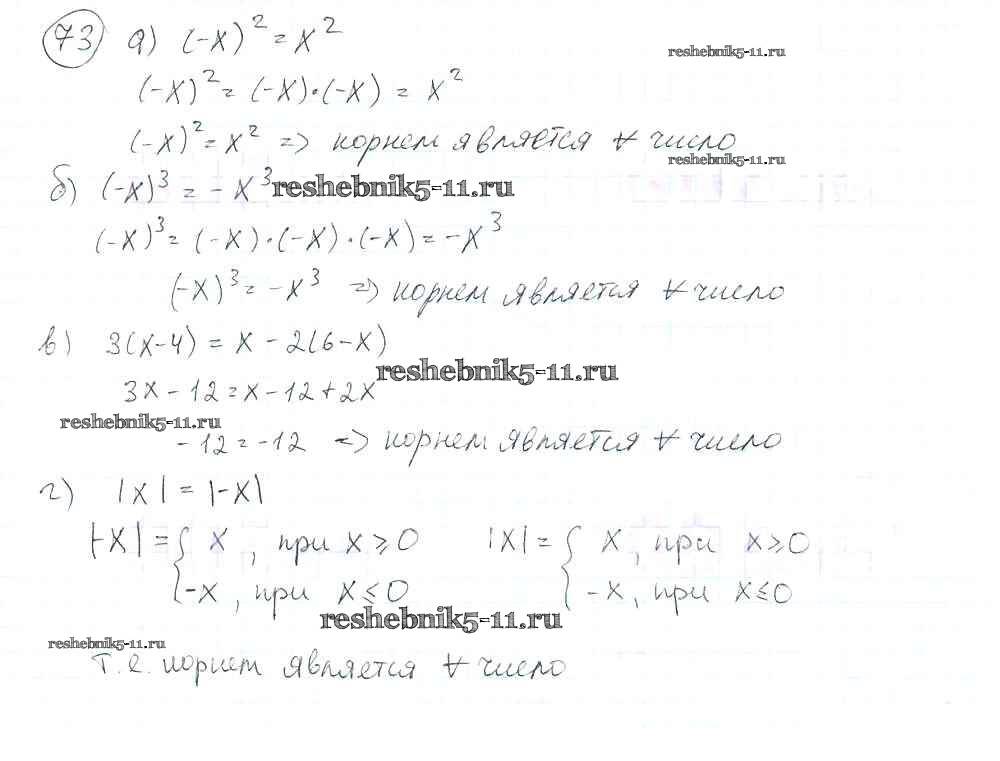 73 а) (-x)² = x²
reshebnik5-11.ru
(-x)² = (-x)·(-x) = x²
(-x)² = x² => корнем является ∀ число
reshebnik5-11.ru
б) (-x)³ = -x³
reshebnik5-11.ru
(-x)³ = (-x)·(-x)·(-x) = -x³
(-x)³ = -x³ => корнем является ∀ число
в) 3(x-4) = x - 2(6-x)
reshebnik5-11.ru
3x - 12 = x - 12 + 2x
reshebnik5-11.ru
-12 = -12 => корнем является ∀ число
г) |x| = |-x|
|-x| = { x, при x ⩾ 0 |x| = { x, при x ⩾ 0
-x, при x ≤ 0 -x, при x ≤ 0
reshebnik5-11.ru
reshebnik5-11.ru
т.е. корнем является ∀ число